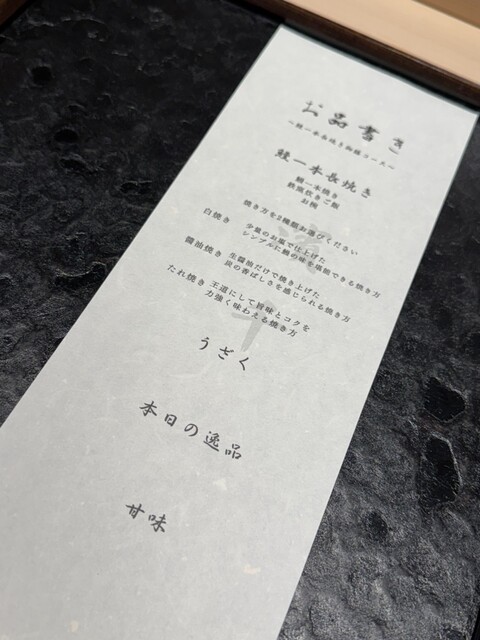 お品書き
〜鰻一本長焼き御膳コース〜
鰻一本長焼き
鰻一本焼き
鉄窯炊きご飯
お椀
焼き方を2種類お選びください
白焼き 少量のお塩で仕上げた
シンプルに鰻の味を堪能できる焼き方
醤油焼き 生醤油だけで焼き上げた
炭の香ばしさを感じられる焼き方
たれ焼き 王道にして旨味とコクを
力強く味わえる焼き方
うざく
本日の逸品
甘味